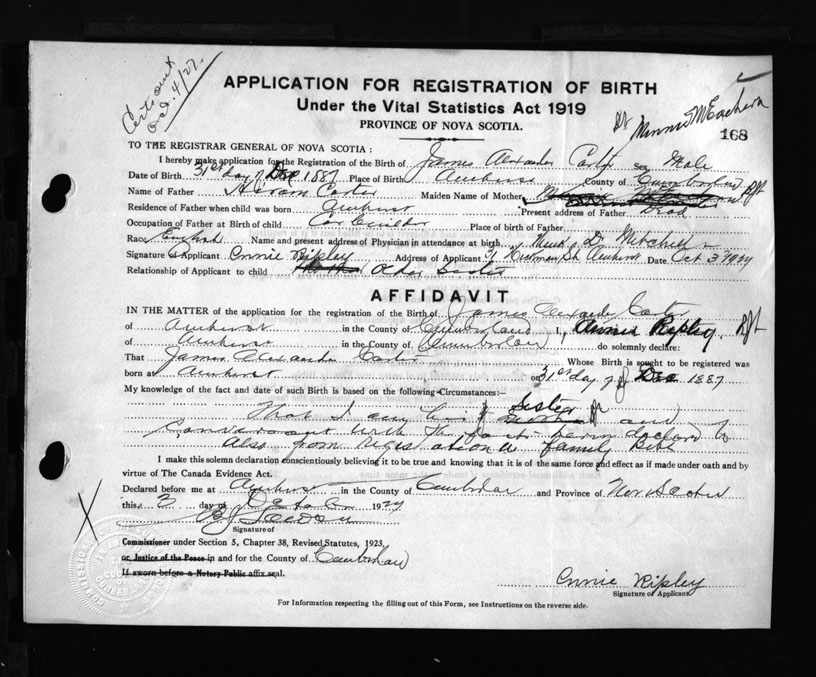 Oct. 4/27.
APPLICATION FOR REGISTRATION OF BIRTH
Under the Vital Statistics Act 1919
PROVINCE OF NOVA SCOTIA.
Minnie McEachern
168
TO THE REGISTRAR GENERAL OF NOVA SCOTIA :
I hereby make application for the Registration of the Birth of James Alexander Carter Sex Male
Date of Birth 31st day of Dec 1887 Place of Birth Amherst County of Cumberland
Name of Father Hiram Carter Maiden Name of Mother
Residence of Father when child was born Amherst Present address of Father Dead
Occupation of Father at Birth of child Car Builder Place of birth of Father
Race English Name and present address of Physician in attendance at birth Dr Mitchell
Signature of Applicant Annie Ripley Address of Applicant St Amherst Date Oct 3 1927
Relationship of Applicant to child Older Sister
AFFIDAVIT
IN THE MATTER of the application for the registration of the Birth of James Alexander Carter
of Amherst in the County of Cumberland I, Annie Ripley
of Amherst in the County of Cumberland do solemnly declare:
That James Alexander Carter Whose Birth is sought to be registered was
born at Amherst on 31st day of Dec 1887
My knowledge of the fact and date of such Birth is based on the following Circumstances:—
That I am his Sister and
Conversant with the facts herein declared to
Also from registration in family Bible
I make this solemn declaration conscientiously believing it to be true and knowing that it is of the same force and effect as if made under oath and by
virtue of The Canada Evidence Act.
Declared before me at Amherst in the County of Cumberland and Province of Nova Scotia
this 3 day of October 1927
Signature of
Commissioner under Section 5, Chapter 38, Revised Statutes, 1923,
or Justice of the Peace in and for the County of Cumberland
If sworn before a Notary Public affix seal.
Annie Ripley
Signature of Applicant
For Information respecting the filling out of this Form, see Instructions on the reverse side.